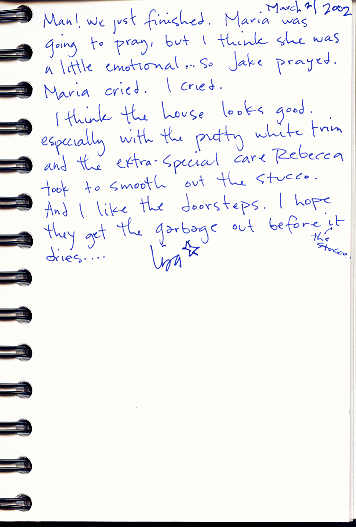 March 2002
Man! we just finished. Maria was
going to pray, but I think she was
a little emotional... so Jake prayed.
Maria cried. I cried.
I think the house looks good.
especially with the pretty white trim
and the extra-special care Rebecca
took to smooth out the stucco.
And I like the doorsteps. I hope
they get the garbage out before it
the stucco.
dries....